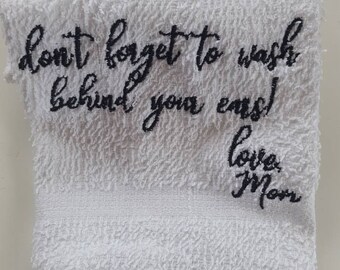 don't forget to wash
behind your ears!
love,
Mom